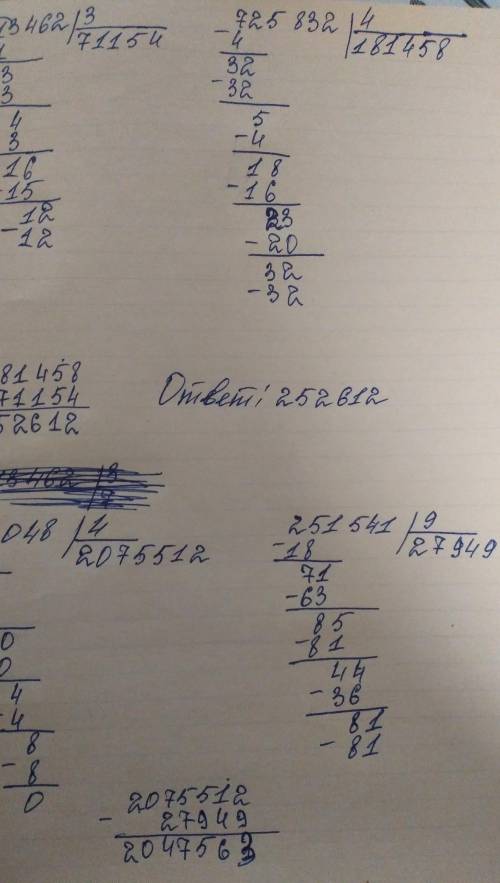 13462 | 3
71154
3
3
4
3
16
-15
12
-12
725 832 | 4
181458
-4
32
-32
5
-4
18
-16
23
-20
32
-32
81458
71154
52612
Ответ: 252612
048 | 4
2075512
0
0
4
-4
8
-8
0
251541 | 9
27949
-18
71
-63
85
-81
44
-36
81
-81
2075512
- 27949
2047563